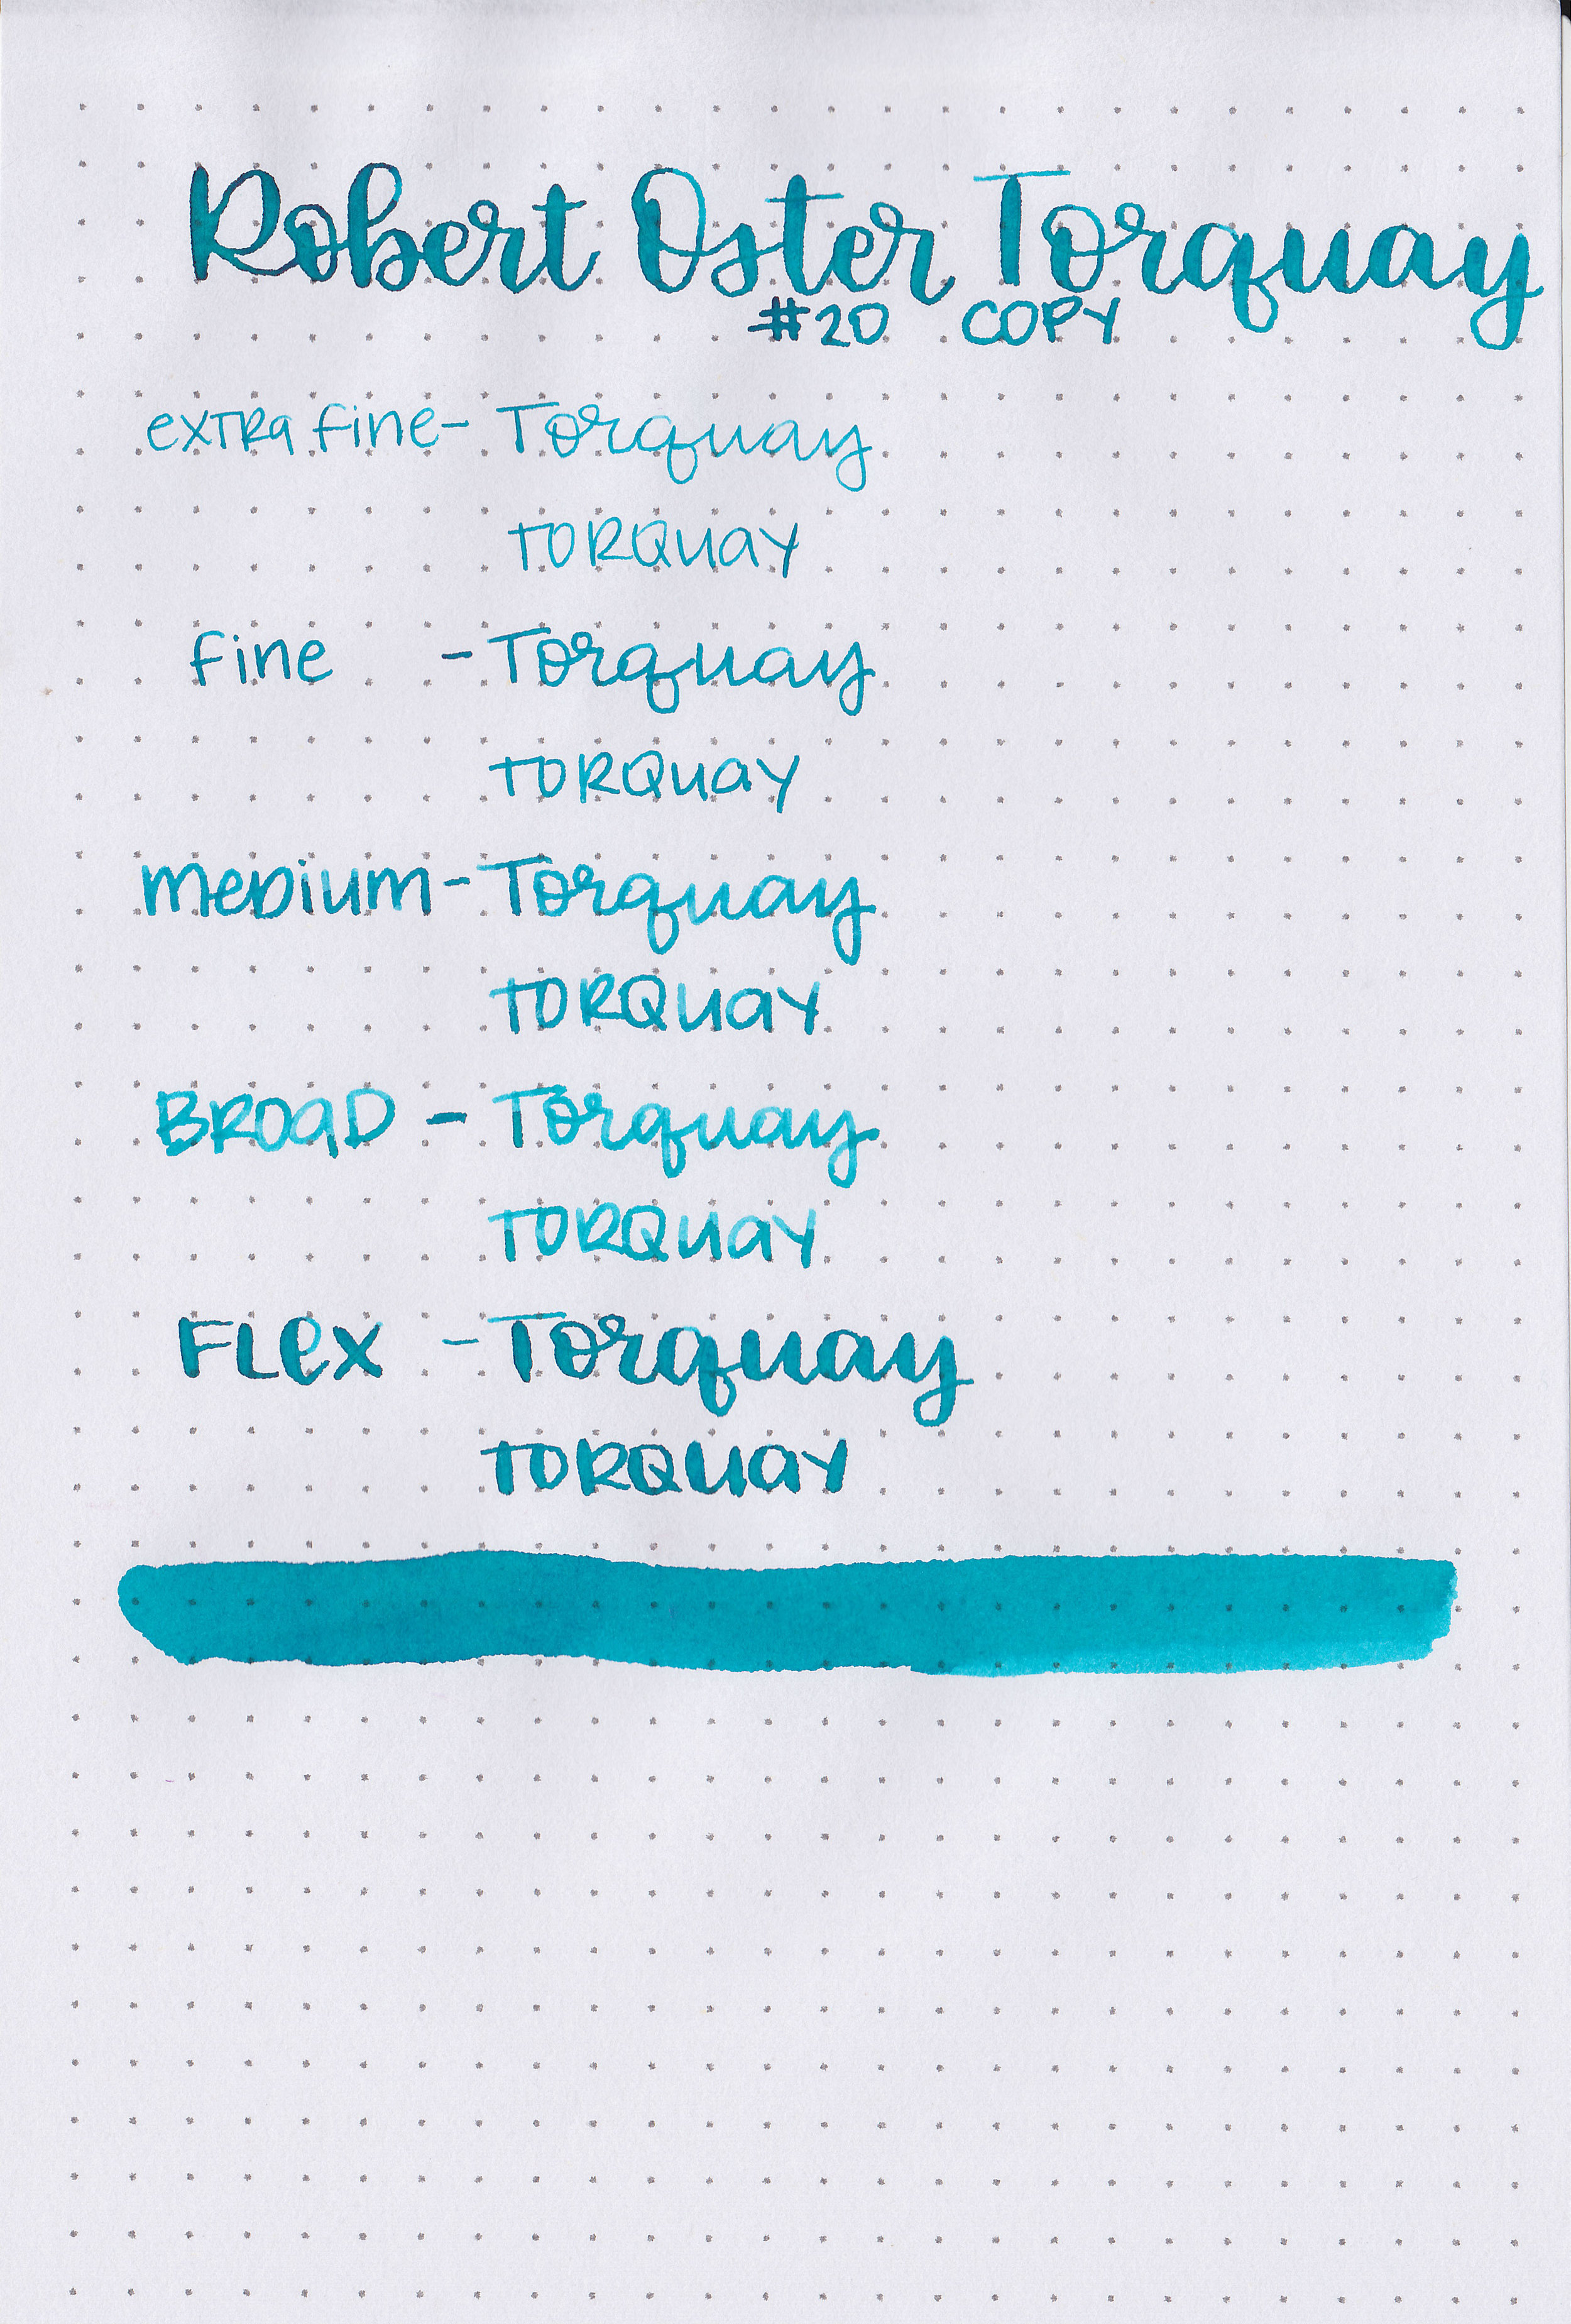 Robert Oster Torquay
#20 COPY
extra fine- Torquay
TORQUAY
fine - Torquay
TORQUAY
medium - Torquay
TORQUAY
BROAD - Torquay
TORQUAY
FLex - Torquay
TORQUAY